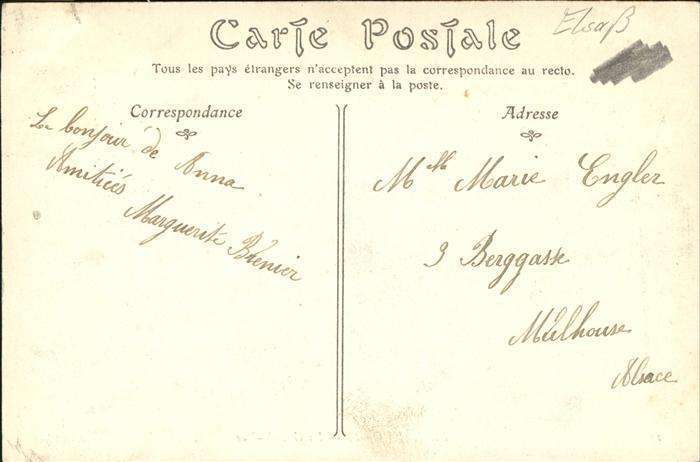 Elsaß
Carte Postale
Tous les pays étrangers n'acceptent pas la correspondance au recto.
Se renseigner à la poste.
Correspondance
Le bonjour de Anna
Amitiés
Marguerite Brenier
Adresse
Mlle Marie Engler
3 Berggasse
Mulhouse
Alsace